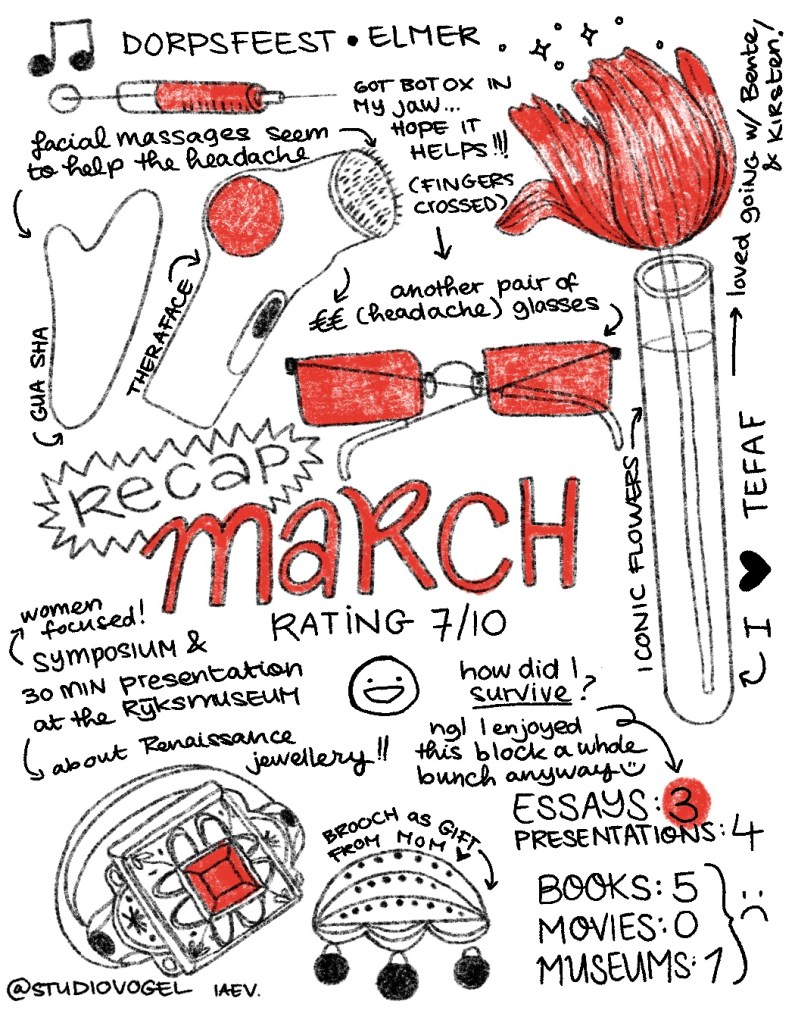 DORPSFEEST • ELMER
GOT BOTOX IN
MY JAW...
HOPE IT
HELPS!!!
(FINGERS
CROSSED)
facial massages seem
to help the headache
GUA SHA
THERAFACE
€€
another pair of
(headache) glasses
loved going w/ Bente,
& Kirsten!
I ♥ TEFAF
ICONIC FLOWERS
RECAP
MARCH
RATING 7/10
women
focused!
SYMPOSIUM &
30 MIN presentation
at the RijksMUSEUM
about Renaissance
jewellery!!
how did I
survive?
ngl I enjoyed
this block a whole
bunch anyway
ESSAYS: 3
PRESENTATIONS: 4
BROOCH as GIFT
FROM MOM ♥
BOOKS: 5
MOVIES: 0
MUSEUMS: 1
:(
@STUDIOVOGEL IAEV.